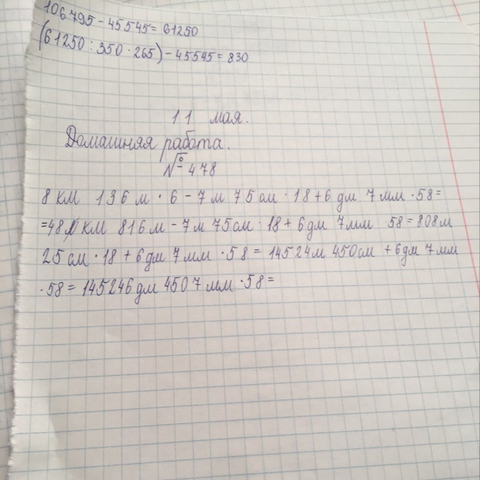 106795 - 45545 = 61250
(61250 : 350 · 265) - 45545 = 830
11 мая.
Домашняя работа.
№ 478
8 км 136 м · 6 - 7 м 75 см · 18 + 6 дм 7 мм · 58 =
= 48 км 816 м - 7 м 75 см · 18 + 6 дм 7 мм 58 = 808 м
25 см · 18 + 6 дм 7 мм · 58 = 14524 м 450 см + 6 дм 7 мм
· 58 = 145246 дм 4507 мм · 58 =